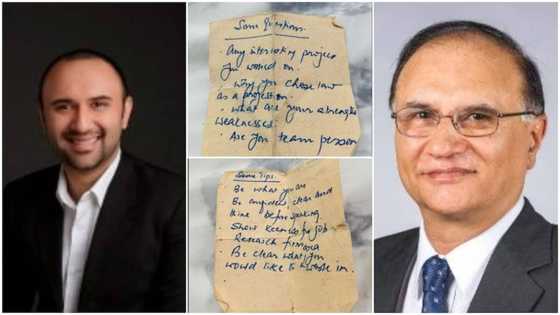 Some Questions.
· Any interesting project
you worked on.
· Why you chose law
as a profession.
· What are your strengths
weaknesses.
· Are you team person
Some Tips.
· Be what you are
· Be confident, clear and
think before speaking
· Show keenness for job
· Research firm
· Be clear what you
would like to work in.